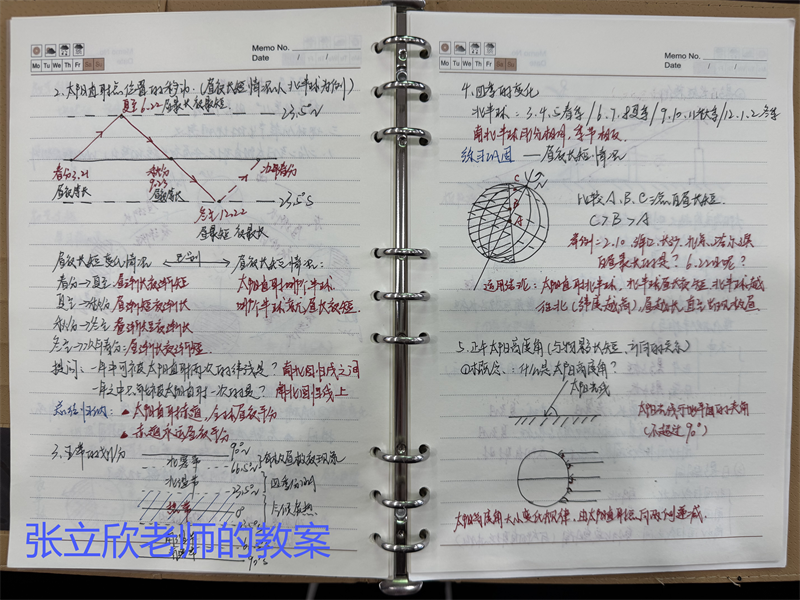 Memo No.
Date / /
Mo Tu We Th Fr Sa Su
2. 太阳直射点位置的移动. (昼夜长短情况以北半球为例)
夏至6.22 昼最长夜最短.
23.5°N
春分3.21
昼夜等长
秋分
9.23
昼夜等长
次年春分
23.5°S
冬至12.22
昼最短 夜最长
昼夜长短变化情况 区别 昼夜长短情况:
春分→夏至:
太阳直射哪个半球
夏至→秋分:
哪个半球首先昼长夜短.
秋分→冬至
冬至→次年春分:
提问: 一年中可被太阳直射两次的纬线是? 南北回归线之间
一年之中只能被太阳直射一次的是? 南北回归线上
总结归纳: ▲太阳直射赤道, 全球昼夜平分
▲赤道永远昼夜平分
3. 五带的划分
90°N
北寒带
66.5°N
有极昼极夜现象
北温带
四季分明
23.5°N
热带
0°
天气炎热
张立欣老师的教案
Memo No.
Date / /
Mo Tu We Th Fr Sa Su
4. 四季的变化
北半球: 3.4.5春季/6.7.8夏季/9.10.11秋季/12.1.2冬季
南北半球月份相同, 季节相反.
练习巩固 ——昼夜长短情况
C
B
A
比较A、B、C三点昼长短.
C>B>A
昼最长的是? 6.22日呢?
运用结论: 太阳直射北半球, 北半球昼长夜短, 北半球越
往北(纬度越高), 昼越长, 直至出现极昼
5. 正午太阳高度角(与物影长短、时间的关系)
①概念: 什么是太阳高度角?
太阳光线
太阳光线于地平面的夹角
(不超过90°)
太阳高度角大小变化规律, 由太阳直射点向两侧递减.